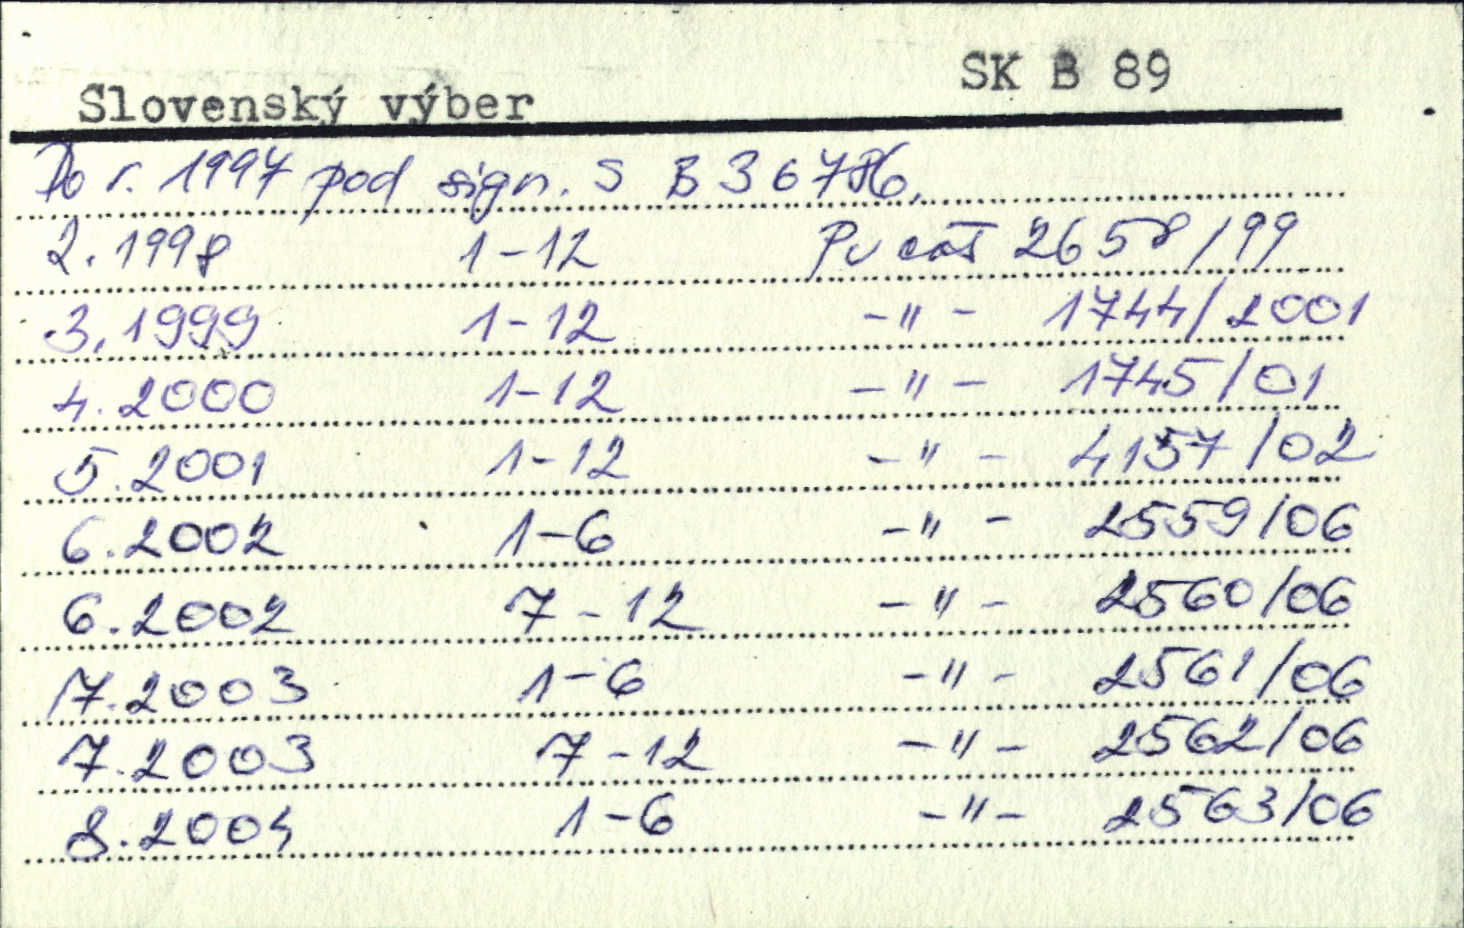 SK B 89
Slovenský výber
Do r. 1997 pod sign. S B 36786.
2. 1998 1-12 Pv čas 2658/99
3. 1999 1-12 -"- 1744/2001
4. 2000 1-12 -"- 1745/01
5. 2001 1-12 -"- 4157/02
6. 2002 1-6 -"- 2559/06
6. 2002 7-12 -"- 2560/06
7. 2003 1-6 -"- 2561/06
7. 2003 7-12 -"- 2562/06
8. 2004 1-6 -"- 2563/06